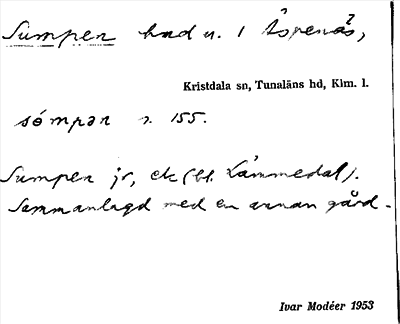 Sumpen hmd u. 1 Åspenäs,
Kristdala sn, Tunaläns hd, Klm. l.
sómpan s. 155.
Sumpen jr, ek (bl. Lämmedal).
Sammanlagd med en annan gård.
Ivar Modéer 1953